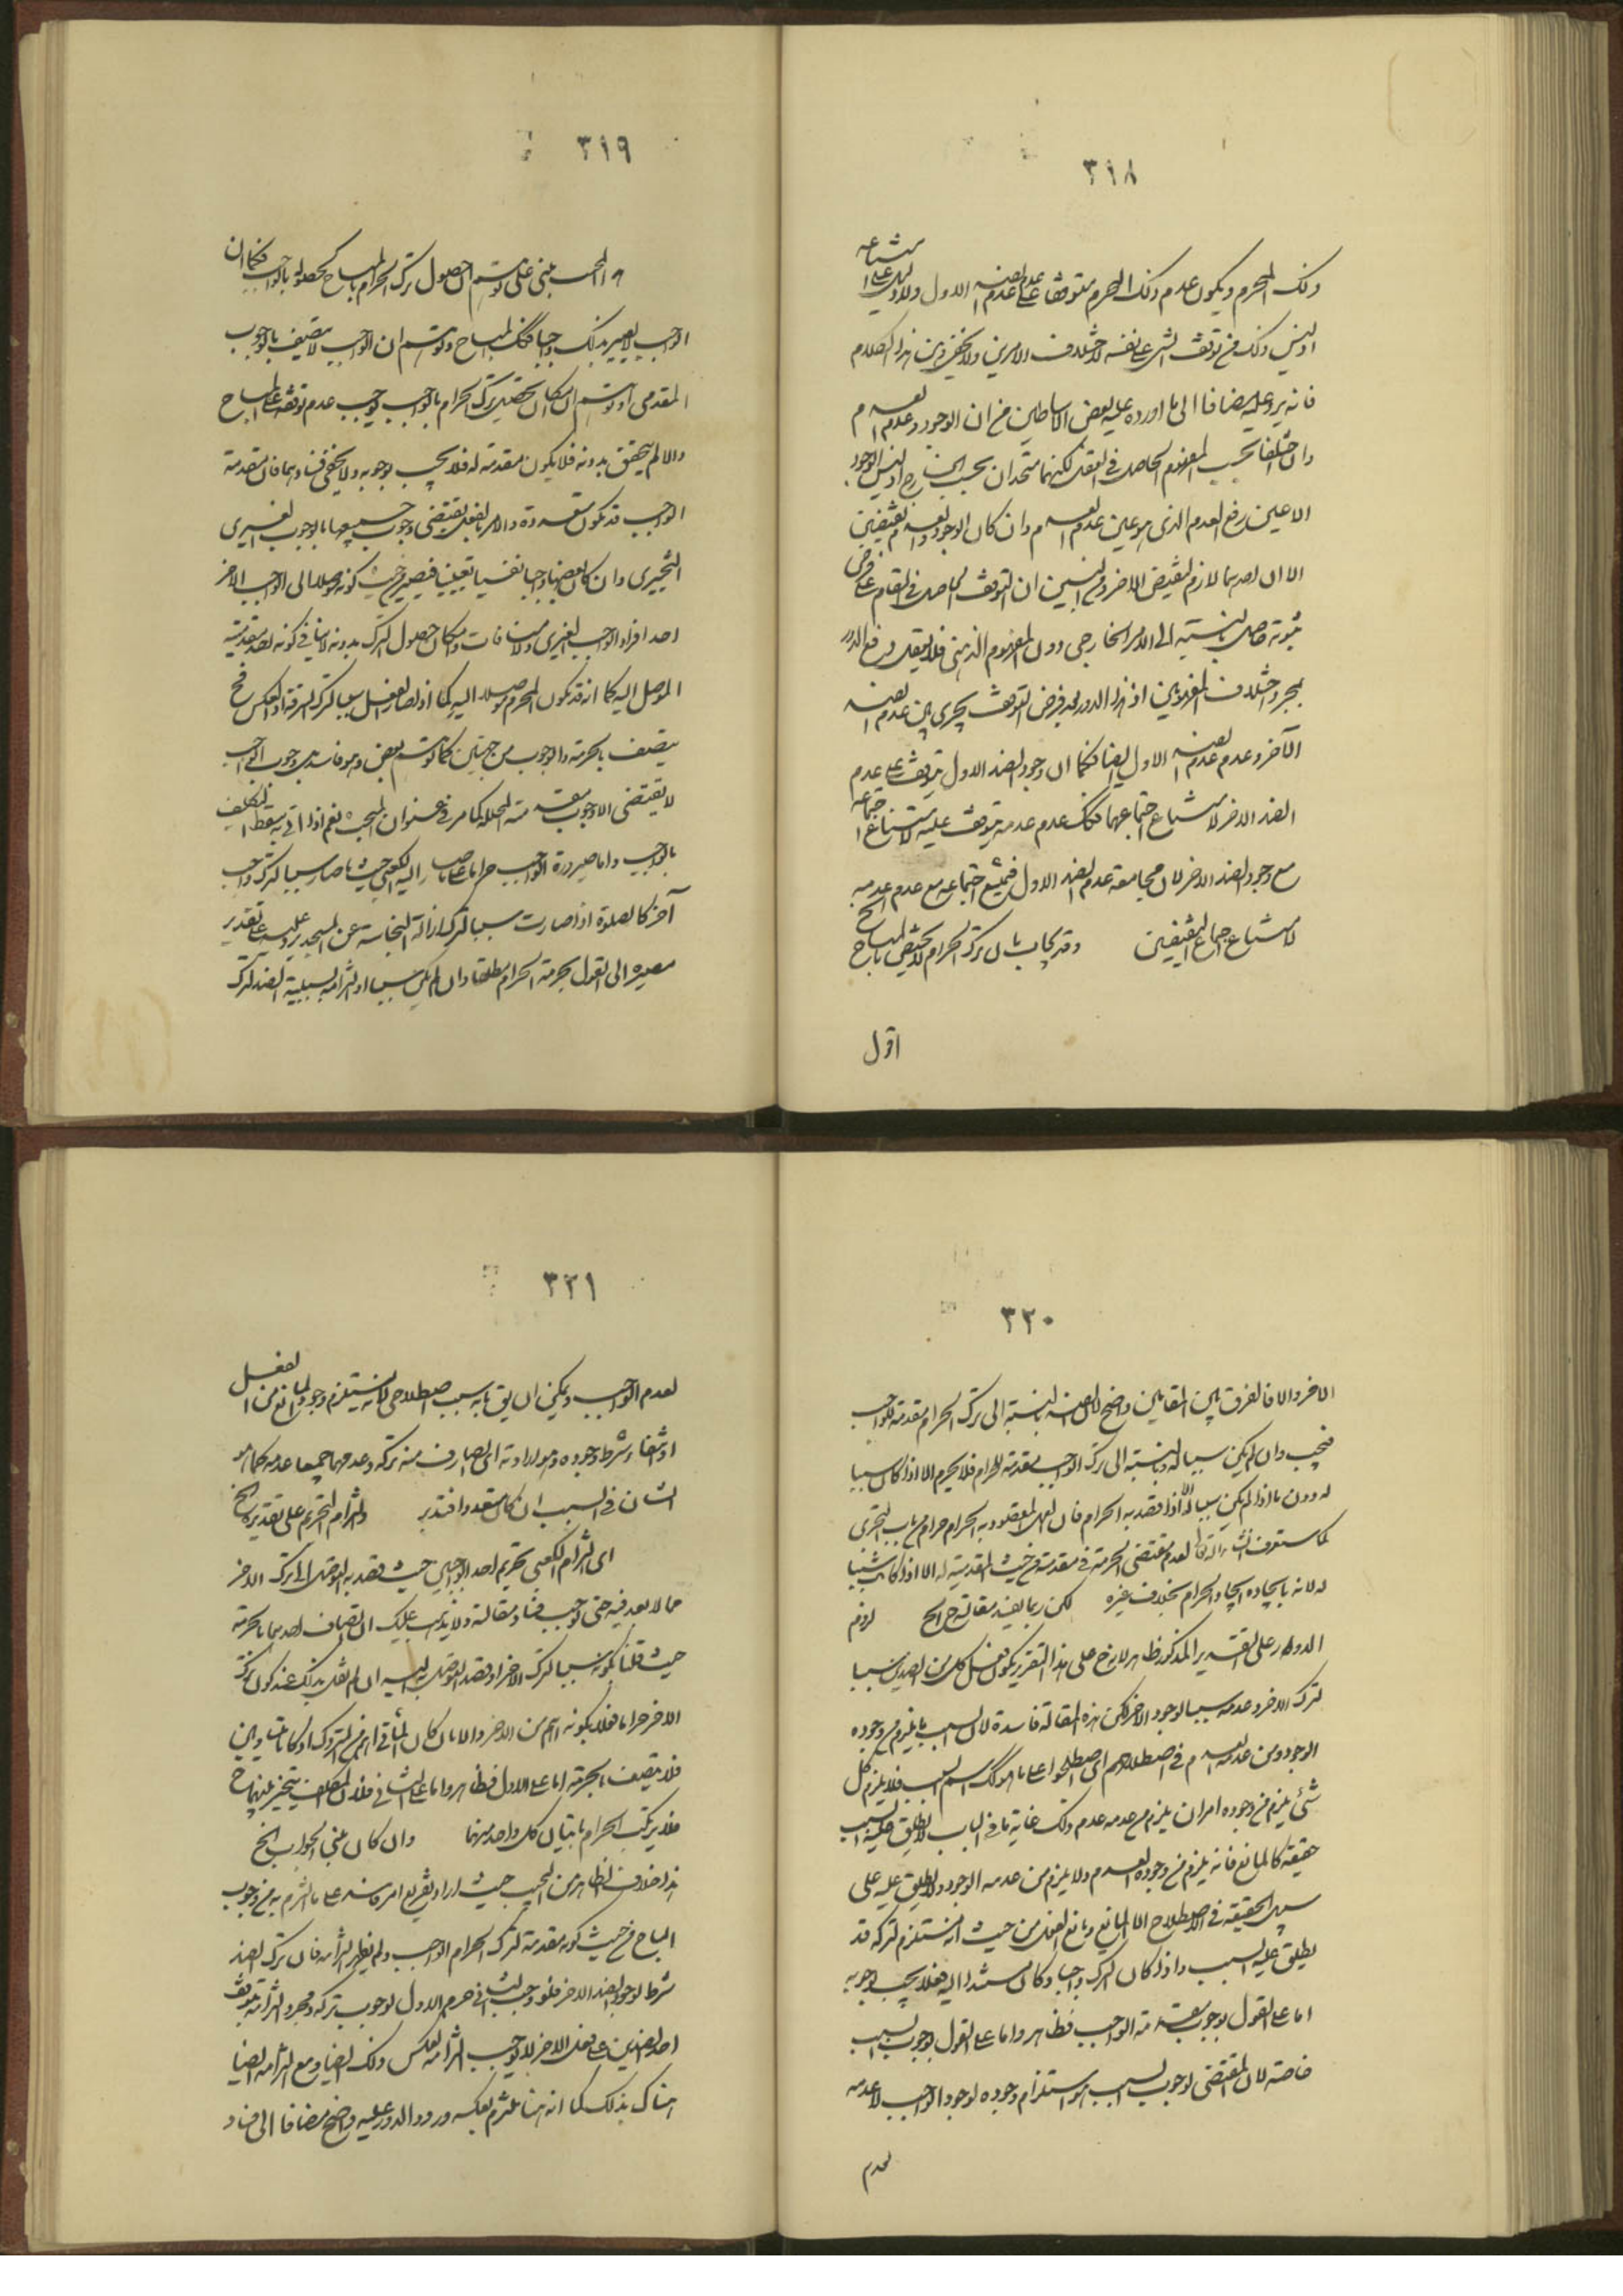 ٣١٨
ذلك المحرم ويكون عدم ذلك المحرم متوقفا على عدم عدم الضد الاول ولا دليل على امتناعه
اذ ليس ذلك من توقف الشئ على نفسه لاختلاف الامرين ولا يخفى وهن هذا الكلام
فانه يرد عليه مضافا الى ما اورده عليه بعض الاساطين من ان الوجود وعدم العدم
وان اختلفا بحسب المفهوم الحاصل في العقل لكنهما متحدان بحسب الخارج اذ ليس الوجود
الا عين رفع العدم الذي هو عين عدم العدم وان كان الوجود والعدم نقيضين
الا ان احدهما لازم لنقيض الاخر ومن البين ان التوقف الحاصل في المقام على فرض
ثبوته حاصل بالنسبة الى الامر الخارجي دون المفهوم الذهني فلا يعقل دفع الدور
بمجرد اختلاف المفهومين اذ هذا الدور بعد فرض التوقف يجري بين عدم الضد
الآخر وعدم عدم الضد الاول ايضا فكما ان وجود الضد الاول يتوقف على عدم
الضد الاخر لامتناع اجتماعهما فكك عدم عدمه يتوقف عليه لامتناع اجتماعه
مع وجود الضد الاخر لان مجامعة عدم الضد الاول فيمتنع اجتماعه مع عدم عدمه
لامتناع اجتماع النقيضين وقد يجاب بان ترك الحرام لا يختص بالمباح الخ
اقول
٣١٩
الواجب لا يصير بذلك واجبا فكك المباح وتوهم ان الواجب لا يتصف بالوجوب
المقدمي او توهم ان امكان تحصيل ترك الحرام بالواجب يوجب عدم توقفه على المباح
والا لم يتحقق بدونه فلا يكون مقدمة له فلا يجب بوجوبه ولا يخفى فسادهما فان مقدمة
الواجب قد تكون متعددة والامر بالفعل يقتضي وجوب جميعها بالوجوب الغيري
التخييري وان كان بعضها واجبا نفسيا تعيينيا فيصير من حيث كونه موصلا الى الواجب الاخر
احد افراد الواجب الغيري ولا منافات وامكان حصول الترك بدونه لا ينافي كونه احد مقدمته
يتصف بالحرمة والوجوب من جهتين كما توهم بعض وهو فاسد بل وجوب الواجب
لا يقتضي الا وجوب مقدمته المحللة كما مر في عنوان المبحث نعم اذا اتى به سقط التكليف
بالواجب واما صيرورة الواجب حراما على ما صار اليه الكعبي حيث ما صار سببا لترك واجب
آخر كالصلوة اذا صارت سببا لترك ازالة النجاسة عن المسجد يرد عليه على تقدير
مصيره الى القول بحرمة الحرام مطلقا وان لم يكن سببا او التزامه بسببية الضد لترك
٣٢٠
الاخر والا فالفرق بين المقامين واضح لان الضد بالنسبة الى ترك الحرام مقدمة للواجب
فيجب وان لم يكن سببا له وبالنسبة الى ترك الواجب مقدمة للحرام فلا يحرم الا اذا كان سببا
له دون ما اذا لم يكن سببا له الا اذا قصد به الحرام فان الفعل المقصود به الحرام حرام من باب التجري
كما ستعرف انشاء الله تعالى لعدم مقتضى الحرمة في مقدمة من حيث المقدمية له الا اذا كانت سببا
له لانه بايجاده ايجاد الحرام بخلاف غيره لكن ربما يفيد مقالته ح الخ لزوم
الدور على التقدير المذكور ظاهر لانه ح على هذا التقرير يكون فعل كل من الضدين سببا
لترك الاخر وعدمه سببا لوجود الاخر لكن هذه المقالة فاسدة لان السبب ما يلزم من وجوده
الوجود ومن عدمه العدم في اصطلاحهم اي اصطلحوا على ما هو كك اسم السبب فلا يلزم كل
شئ يلزم من وجوده امران يلزم من عدمه عدم ذلك غاية ما في الباب لا يطلق عليه السبب
حقيقة كالمانع فانه يلزم من وجوده العدم ولا يلزم من عدمه الوجود ولا يطلق عليه على
سبيل الحقيقة في الاصطلاح الا المانع ومانع الفعل من حيث انه مستلزم لتركه قد
يطلق عليه السبب واذا كان الترك واجبا وكان مستندا اليه فعلا يجب بوجوبه
اما على القول بوجوب مقدمة الواجب فظاهر واما على القول بوجوب السبب
خاصة لان المقتضي لوجوب السبب هو استلزام وجوده لوجود الواجب لا عدمه
لعدم
٣٢١
لعدم الواجب ويمكن ان يق بانه سبب اصطلاحي لانه يستلزم وجود المانع من الفعل
او انتفاء شرط وجوده وهو ارادته اي الصارف منه تركه وعدمهما جميعا عدمه كما هو
الشان في السبب ان كان متعددا فتدبر والتزام التحريم على تقدير الخ
اي التزام الكعبي تحريم احد الواجبين حيث قصد به التوصل الى ترك الاخر
مما لا بعد فيه حتى يوجب فساد مقالته ولا يذهب عليك ان اتصاف احدهما بالحرمة
حيث قلنا بكونه سببا لترك الاخر او قصد التوصل به اليه ان لم نقل بذلك عند كون ترك
الاخر حراما فعلا بكونه اهم من الاخر والا بان كان الماتي اهم من المتروك او كانا متساويين
فلا يتصف بالحرمة اما على الاول فظاهر واما على الثاني فلان المكلف يتخير بينهما ح
فلا يرتكب الحرام باتيان كل واحد منهما وان كان مبنى الجواب الخ
هذا خلاف الظاهر من المجيب حيث اراد تفريع امر فاسد على ما التزم به من وجوب
المباح من حيث كونه مقدمة لترك الحرام الواجب ولم يظهر التزامه فان ترك الضد
شرط لوجود الضد الاخر فلو وجب الثاني حرم الاول لوجوب تركه ومجرد التزامه بتوقف
احد الضدين على فعل الاخر لا يوجب التزامه بعكس ذلك ايضا ومع التزامه ايضا
هناك بذلك كما انه هنا ملتزم بعكسه ورود الدور عليه واضح مضافا الى فساد